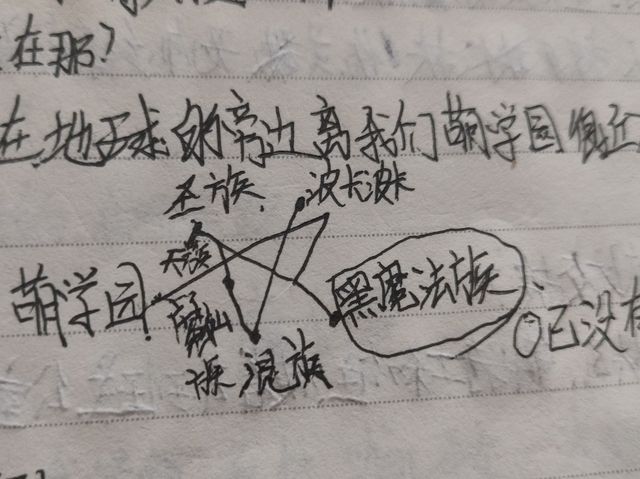 在那？
在地球的旁边离我们萌学园很近
圣族 波卡波卡
天
萌学园 黑魔法族 已没有
族 混族